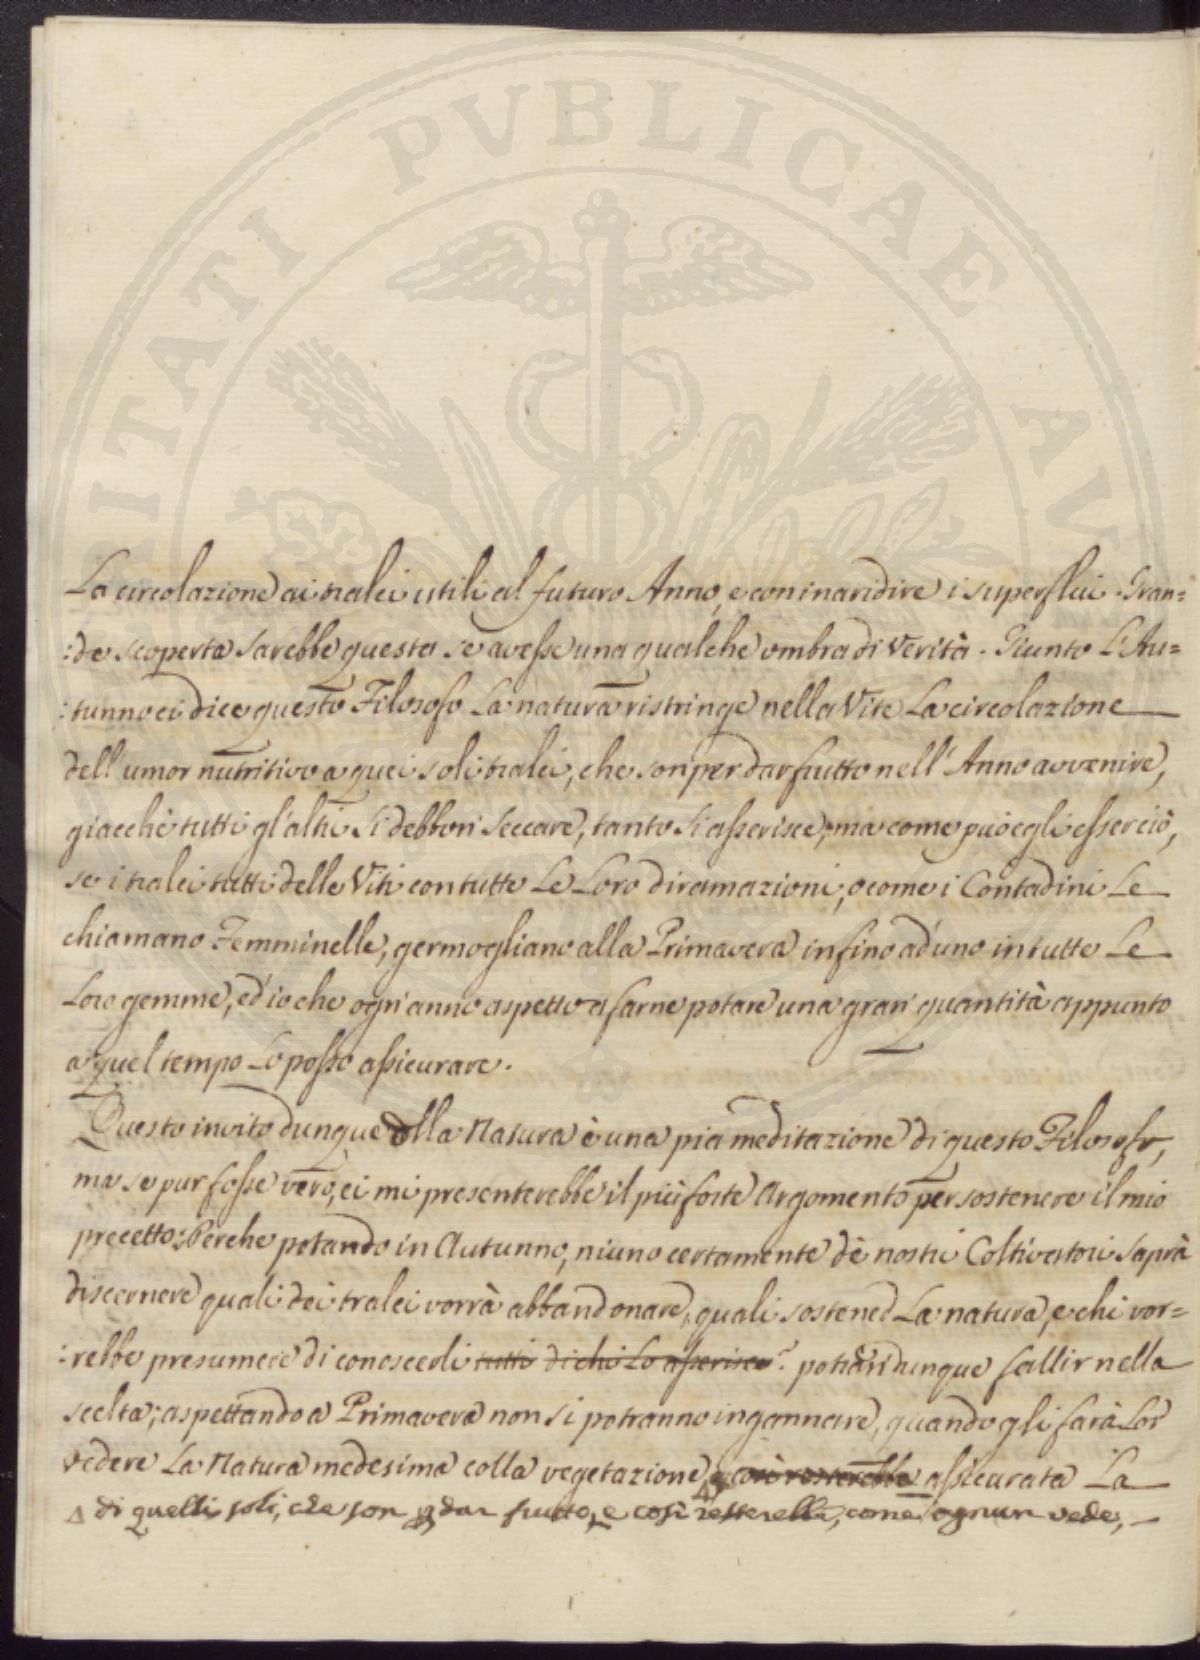 La circolazione ai tralci utili al futuro Anno, e con inaridire i superflui. Gran=
:de scoperta sarebbe questa se avesse una qualche ombra di Verità. Giunto l'Au=
:tunno ci dice questo Filosofo La natura ristringe nella Vite La circolazione
dell'umor nutritivo a quei soli tralci, che son per dar frutto nell'Anno avvenire,
giacchè tutti gl'altri si debbon seccare, tanto si asserisce; ma come può egli esser ciò,
se i tralci tutti delle Viti con tutte Le Loro diramazioni, o come i Contadini Le
chiamano Femminelle, germogliano alla Primavera infino ad'uno in tutte Le
Loro gemme, ed'io che ogn'anno aspetto a farne potare una gran quantità appunto
a quel tempo Lo posso assicurare.
Questo invito dunque della Natura è una pia meditazione di questo Filosofo,
ma se pur fosse vero, ei mi presenterebbe il più forte Argomento per sostenere il mio
precetto: Perche potando in Autunno, niuno certamente de nostri Coltivatori saprà
discernere quali dei tralci vorrà abbandonare, quali sostener La natura, e chi vor=
:rebbe presumere di conoscerli tutti di chi Lo asserisce? potran dunque fallir nella
scelta; aspettando a Primavera non si potranno ingannare, quando gli farà Lor
vedere La Natura medesima colla vegetazione Δ e così resterebbe assicurata La
Δ di quelli soli, che son p dar frutto, e così resterebbe, come ognun vede,